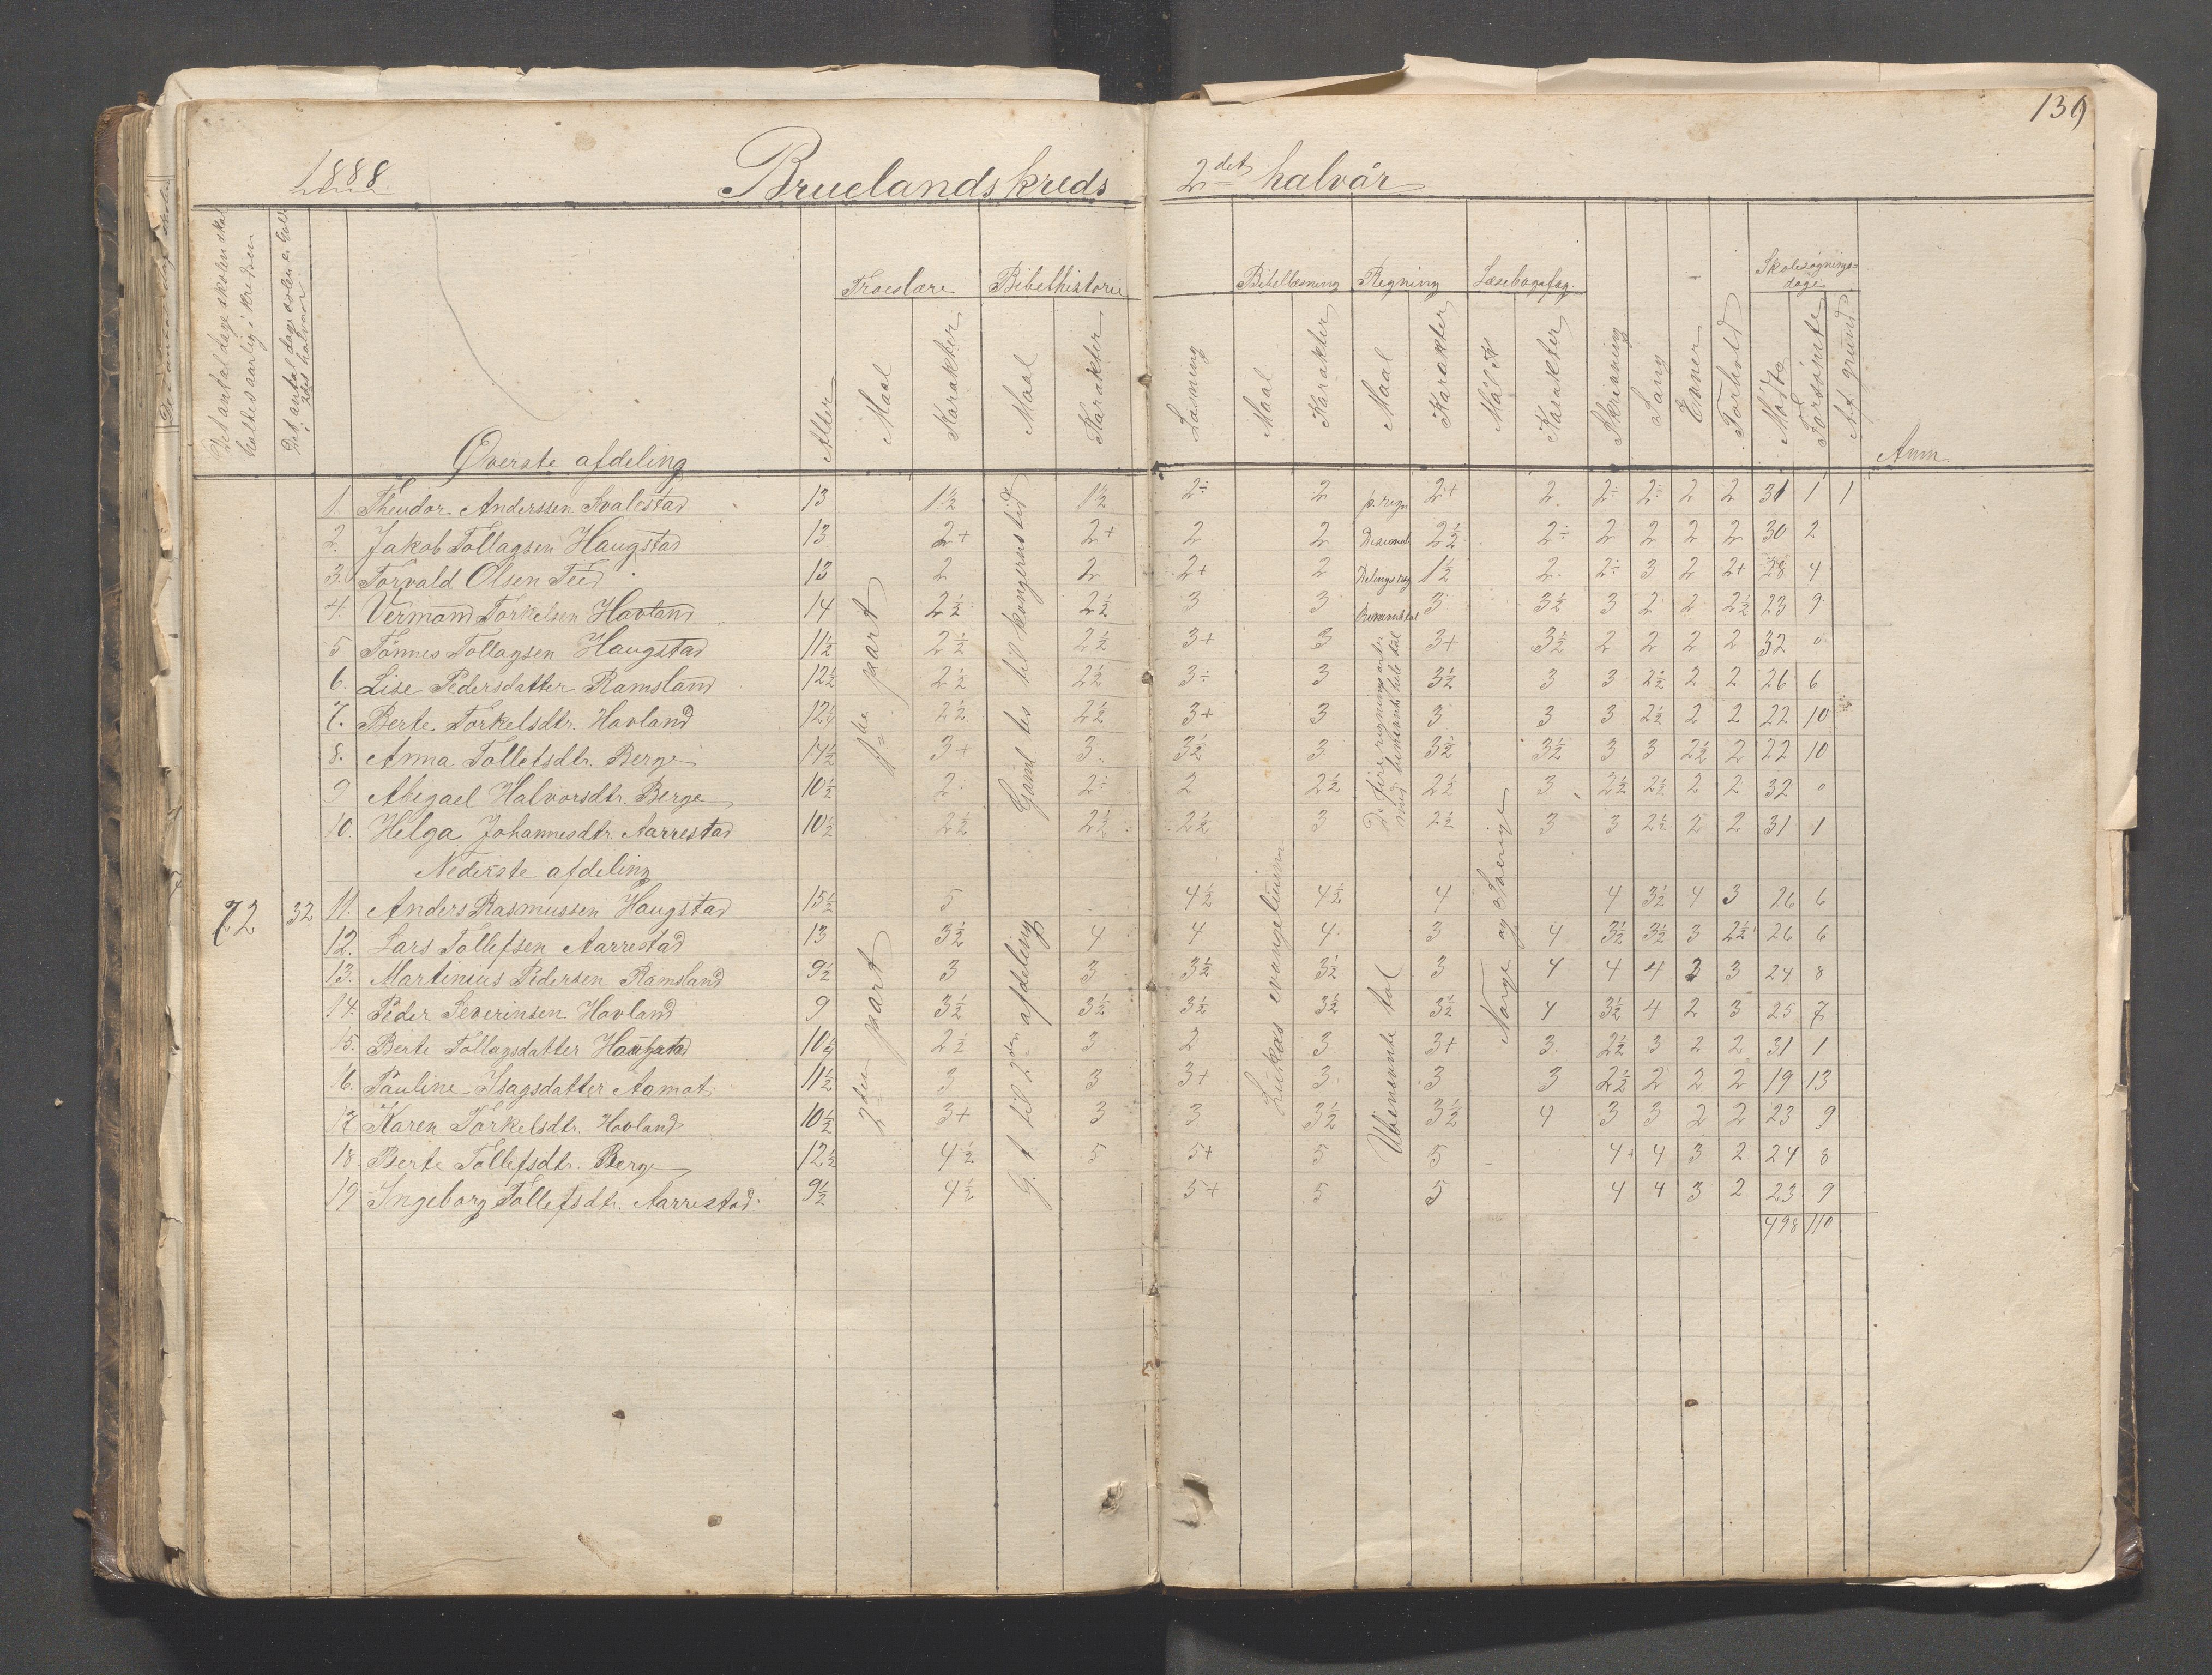 139
1888. Bruelandskreds 2det halvår
Det antal dage skolen skal holdes aarlig i kredsen
Det antal dage skolen er holdt i 2det halvår
Øverste afdeling
Alder
Troeslære Maal Karakter
Bibelhistorie Maal Karakter
Læsning
Bibellæsning Maal Karakter
Regning Maal Karakter
Læsebogsfag. Mål Karakter
Skrivning
Sang
Evner
Forhold
Skolesøgnings- dage Mødte Forsømte Af grund
Anm.
1. Theodor Anderssen Svalestad 13 1½ 1½ 2÷ 2 p.regn 2+ 2. 2÷ 2÷ 2 2 31 1 1
2. Jakob Tollagsen Haugstad 13 2+ 2+ 2 2 Desimal 2½ 2÷ 2 2 2 2 30 2
3. Torvald Olsen Teed 13 2 2 2+ 2 Delingsreg 1½ 2. 2÷ 3 2 2+ 28 4
4. Vermand Torkelsen Havland 14 2½ 2½ 3 3 Benævnt tal 3 3½ 3 2 2 2½ 23 9
5 Tønnes Tollagsen Haugstad 11½ 2½ 2½ 3+ 3 3+ 3½ 2 2 2 2 32 0
6. Lise Pedersdatter Ramsland 12½ 2½ 2½ 3÷ 3 3½ 3 3 2½ 2 2 26 6
7. Berte Torkelsdtr. Havland 12¼ 2½ 2½ 3+ 3 3 3 3 2½ 2 2 22 10
8. Anna Tollefsdtr. Berge 14½ 3+ 3. 3½ 3 3½ 3½ 3 3 2½ 2 22 10
9 Abegael Halvorsdtr. Berge 10½ 2÷ 2÷ 2 2½ 2½ 3 2½ 2½ 2 2 32 0
10. Helga Johannesdtr. Aarrestad 10½ 2½ 2½ 2½ 3 2½ 3 3 2½ 2 2 31 1
1ste part
Gaml. tes. til kongernes tid
De fire regningsarter med benævnt hele tal
Nederste afdeling
72 32 11. Anders Rasmussen Haugstad 15½ 5 4½ 4½ 4 4 3½ 4 3 26 6
12. Lars Tollefsen Aarrestad 13 3½ 4 4 4. 3 4 3½ 3½ 3 2½ 26 6
13. Martinius Pedersen Ramsland 9½ 3 3 3½ 3½ 3 4 4 4 3 3 24 8
14. Peder Severinsen Havland 9 3½ 3½ 3½ 3½ 3½ 4 3½ 4 2 3 25 7
15. Berte Tollagsdatter Haugstad 10¼ 2½ 3 2 3 3+ 3. 2½ 3 2 2 31 1
16. Pauline Isagsdatter Aamat 11½ 3 3 3+ 3 3 3 2½ 2 2 2 19 13
17. Karen Torkelsdtr. Hovland 10½ 3+ 3 3 3½ 3½ 4 3 3 2 2 23 9
18. Berte Tollefsdtr. Berge 12½ 4½ 5 5+ 5 5 4+ 4 3 2 24 8
19 Ingeborg Tollefsdtr. Aarrestad. 9½ 4½ 5+ 5 5 4 4 3 2 23 9
2den part
G. t. til 2den afdeling
Lukas evangelium
Ubenævnte tal
Norge og Sverige
498 110